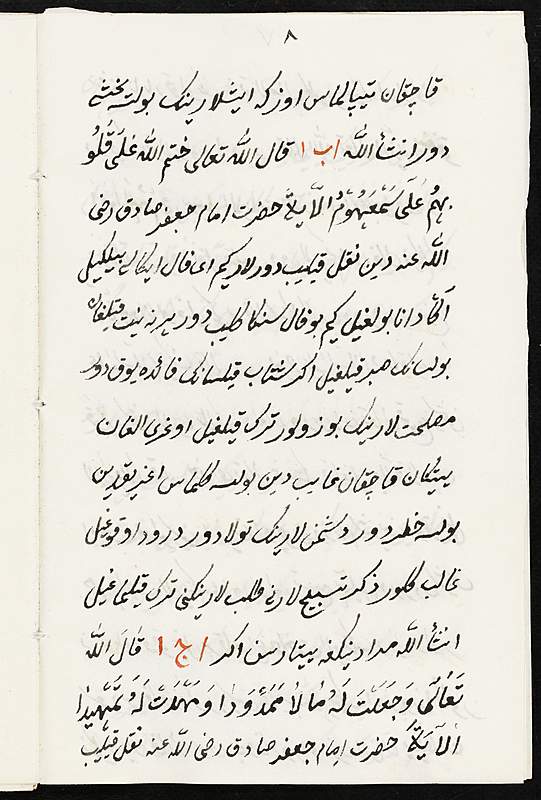 ٨
قاچقان تیپالماس اوزکه ایشلارینک بولسه یخشی
دور انشأ اللّه ا ب ا قال اللّه تعالی ختم اللّه عَلَی قُلُو
بِهِمْ عَلَی سَمْعِهُومْ الْآیَةْ حضرت امام جعفر صادق رضی
اللّه عنه دین نقل قیلیب دورلار کیم ای فال ایکاسی بیلکیل
آکاه دانا بولغیل کیم بو فال سنکا کلیب دور هر نه نیت قیلغان
بولسانک صبر قیلغیل اکر شتاب قیلسانک فائده یوق دور
مصلحت لارینک بوزولور ترک قیلغیل اوغری الغان
ییتکان قاچقان غایب دین بولسه کلماس اغریقدین
بولسه خطر دور دشمن لارینک تولا دور درود اوقوغیل
غالب کلور ذکر تسبیح لارنی طلب لارینکنی ترک قیلماغیل
انشأ اللّه مرادینکغه ییتارسن اکر ا ج ا قَالَ اللّه
تَعَالَی وَجَعَلْتَ لَهُ مَالاً مَمْدُودًا وَمَهَّدْتَ لَهُ تَمْهِیدًا
اَلْآیَةْ حضرت امام جعفر صادق رضی اللّه عنه نقل قیلیب